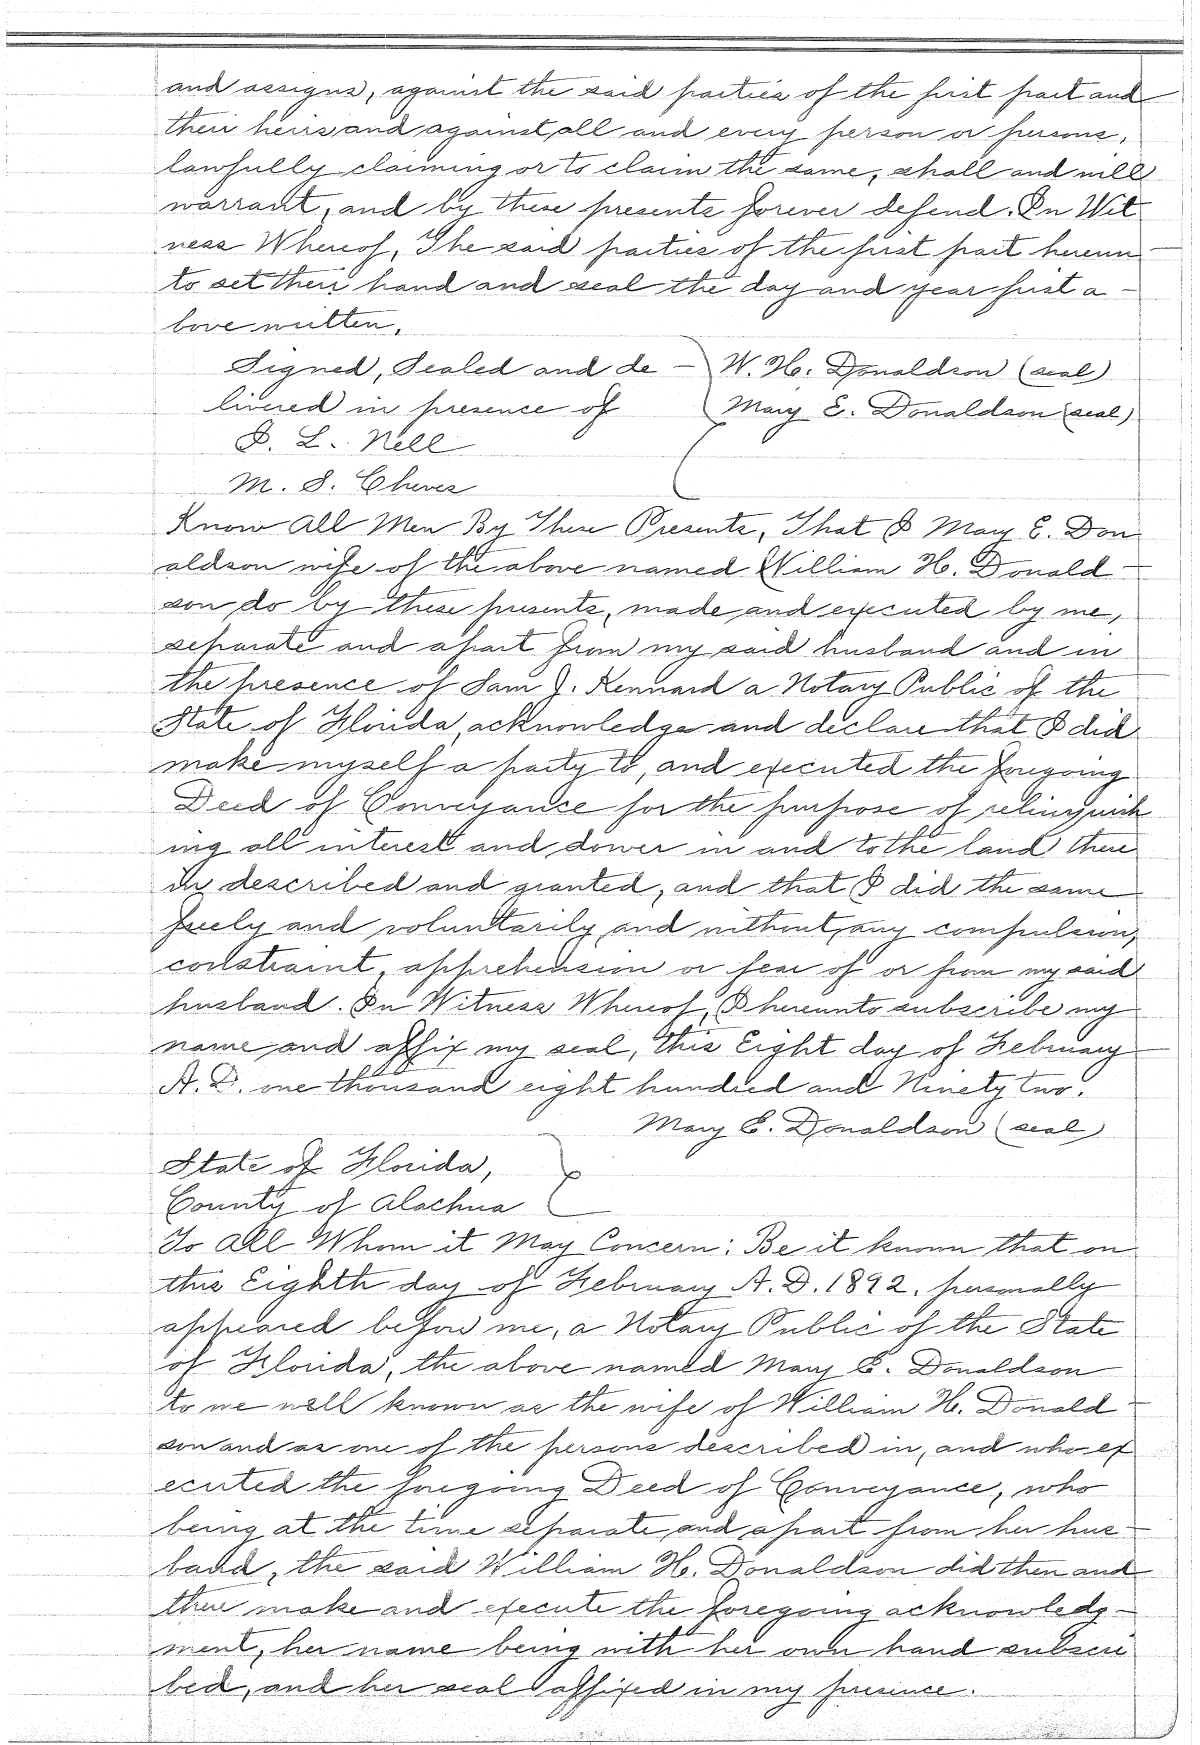 and assigns, against the said parties of the first part and
their heirs and against all and every person or persons,
lawfully claiming or to claim the same, shall and will
warrant, and by these presents forever defend. In Wit
ness Whereof, The said parties of the first part hereun
to set their hand and seal the day and year first a -
bove written.
Signed, Sealed and de - W. H. Donaldson (seal)
livered in presence of Mary E. Donaldson (seal)
I. L. Nell
M. S. Cheves
Know All Men By These Presents, That I Mary E. Don
aldson wife of the above named William H. Donald -
son do by these presents, made and executed by me,
separate and apart from my said husband and in
the presence of Sam J. Kennard a Notary Public of the
State of Florida, acknowledge and declare that I did
make myself a party to, and executed the foregoing
Deed of Conveyance for the purpose of relinquish
ing all interest and dower in and to the land there
in described and granted, and that I did the same
freely and voluntarily and without any compulsion,
constraint, apprehension or fear of or from my said
husband. In Witness Whereof, I hereunto subscribe my
name and affix my seal, this Eight day of February
A. D. one thousand eight hundred and Ninety two.
Mary E. Donaldson (seal)
State of Florida,
County of Alachua
To All Whom it May Concern: Be it known that on
this Eighth day of February A. D. 1892, personally
appeared before me, a Notary Public of the State
of Florida, the above named Mary E. Donaldson
to me well known as the wife of William H. Donald -
son and as one of the persons described in, and who ex
ecuted the foregoing Deed of Conveyance, who
being at the time separate and apart from her hus -
band, the said William H. Donaldson did then and
there make and execute the foregoing acknowledg -
ment, her name being with her own hand subscri
bed, and her seal affixed in my presince.